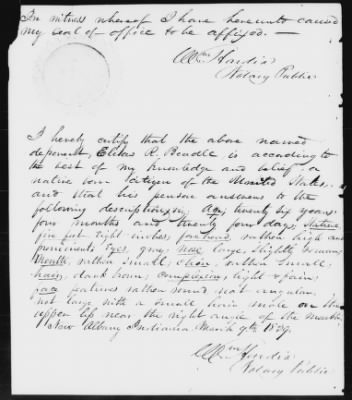 In witness whereof I have hereunto caused
my seal of office to be affixed. —
Notary Public
I hereby certify that the above named
deponent, Elihu R. Beadle is according to
the best of my knowledge and belief a
native born citizen of the United States.
and that his person answers to the
following description viz Age, twenty six years
four months and twenty four days, stature,
five feet eight inches, forehead rather high and
prominent, Eyes, grey, Nose large, slightly Roman,
Mouth, rather small, Chin, rather small,
hair, dark brown, complexion, light & fair,
face features rather round not angular,
not large with a small hair mole on the
upper lip near the right angle of the mouth,
New Albany Indiana March 9th 1859.
Notary Public